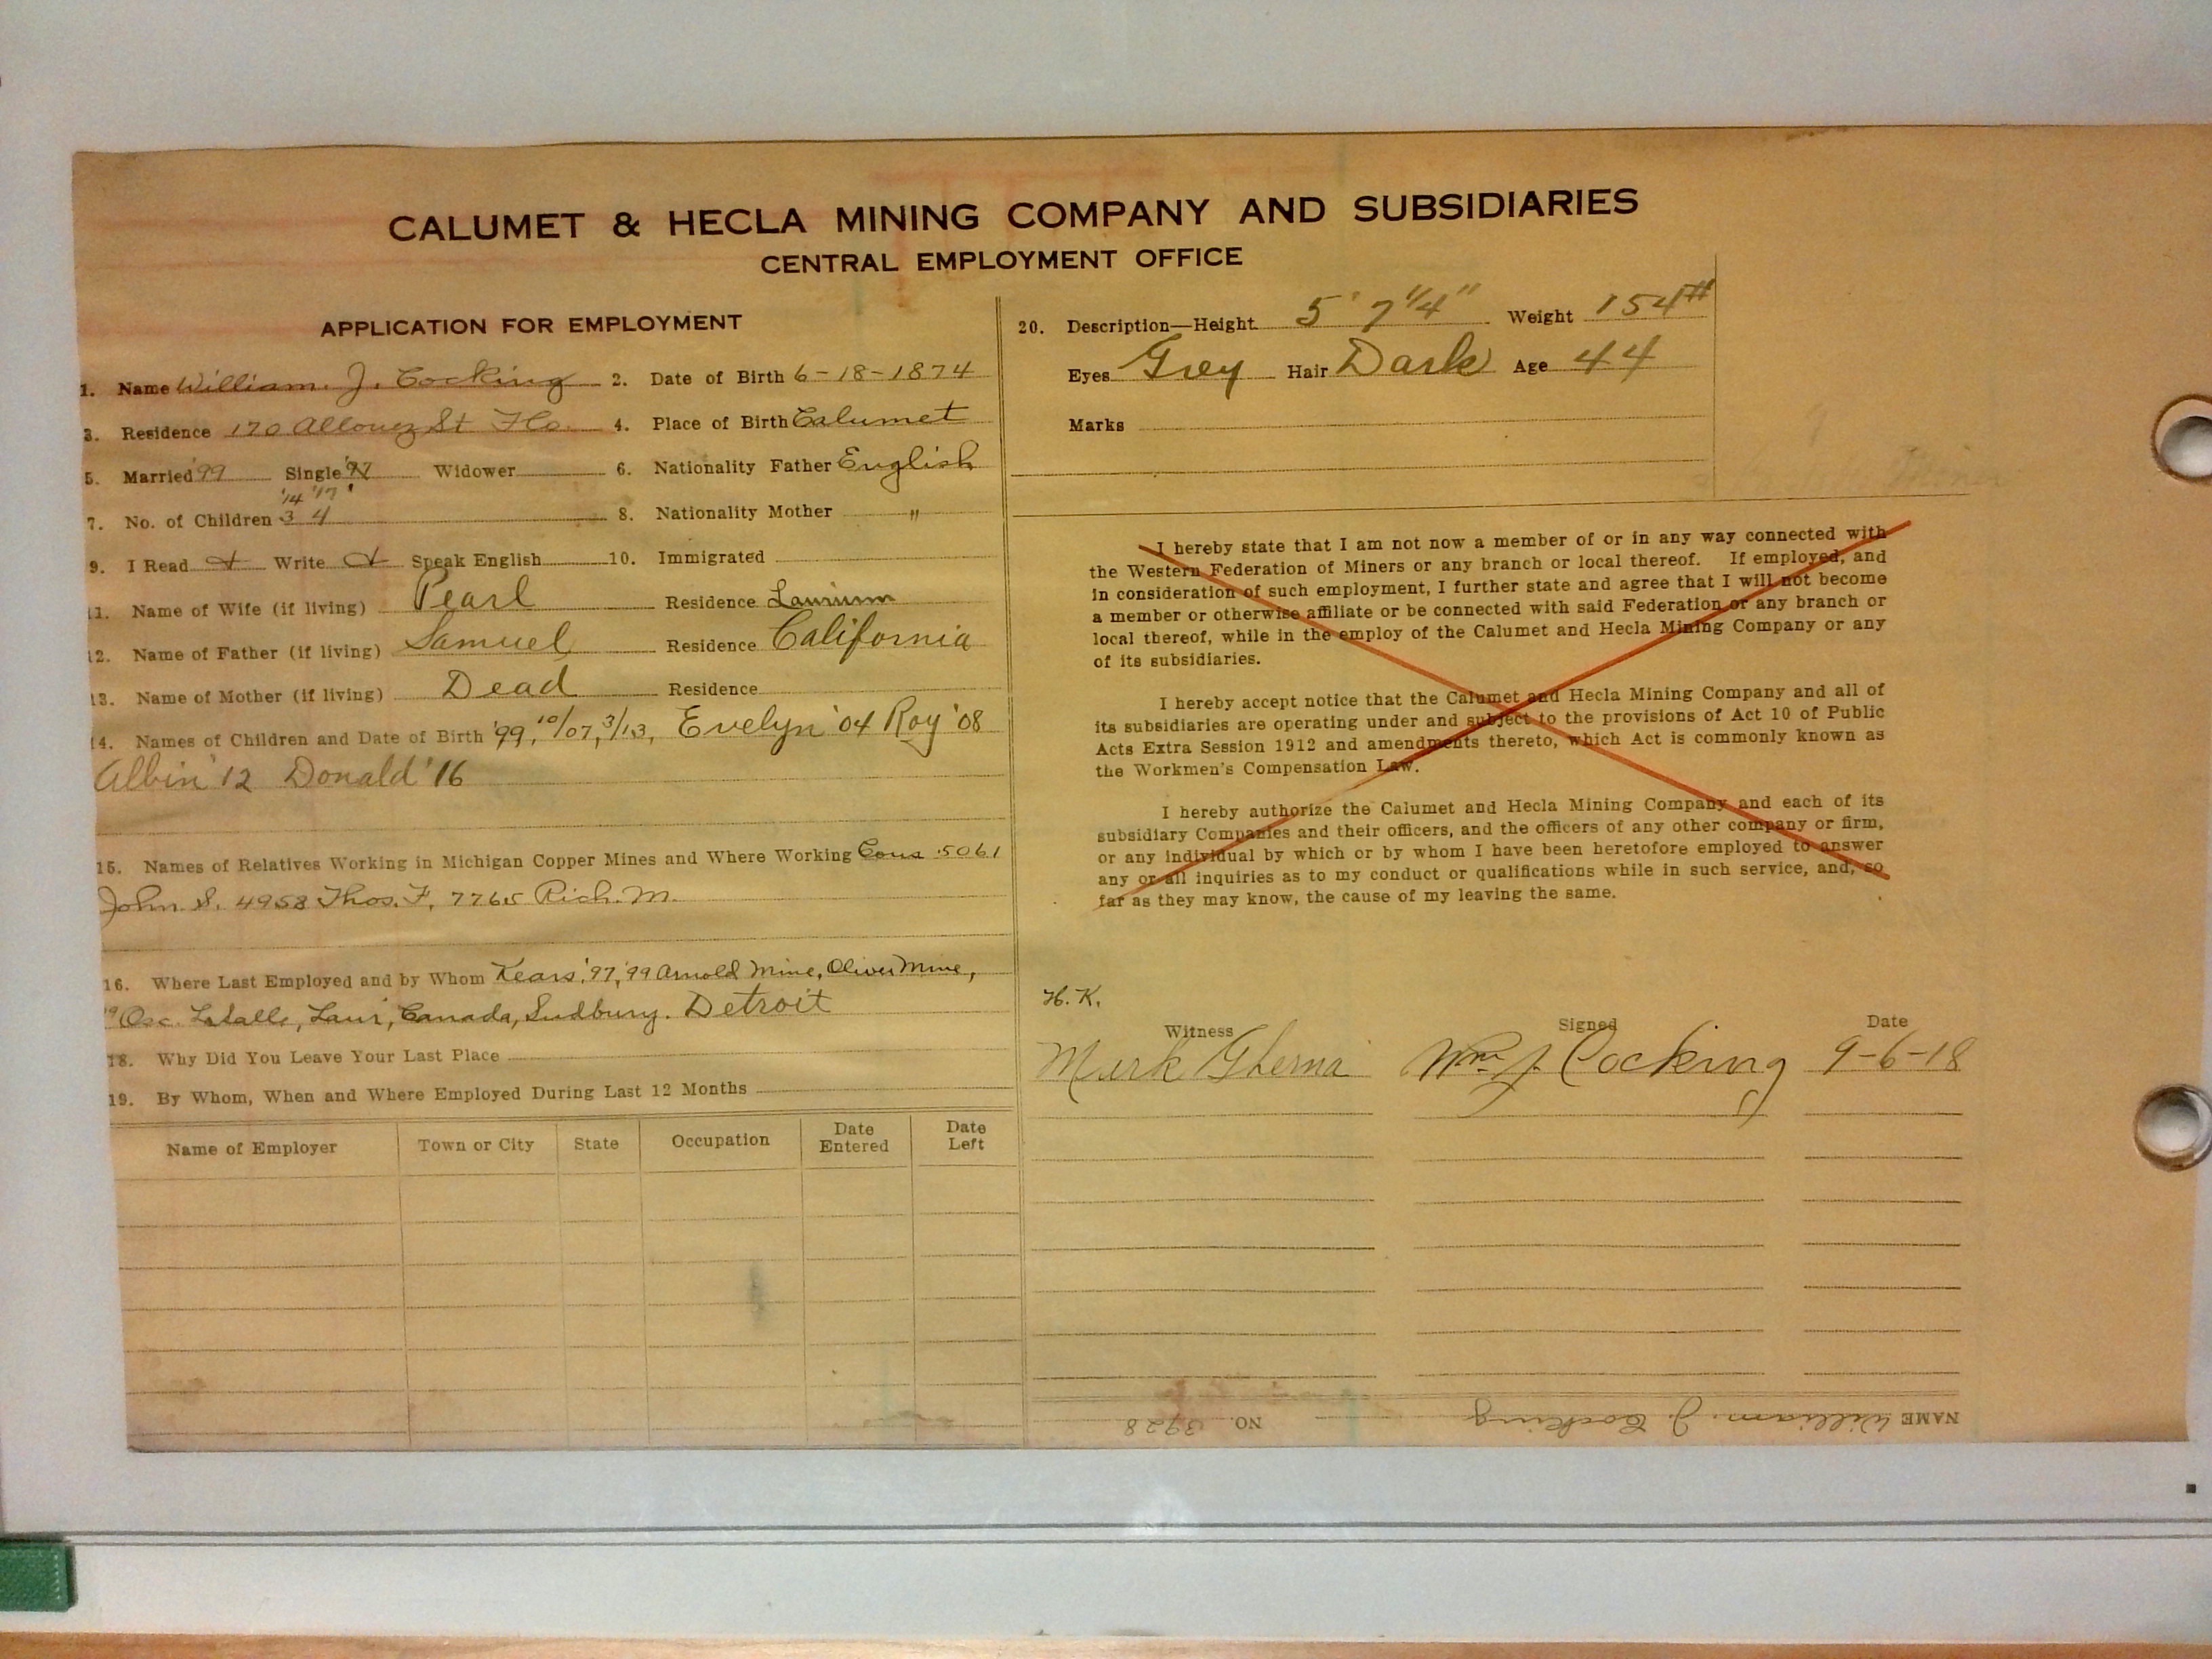 CALUMET & HECLA MINING COMPANY AND SUBSIDIARIES
CENTRAL EMPLOYMENT OFFICE
APPLICATION FOR EMPLOYMENT
1. Name William. J. Cocking 2. Date of Birth 6-18-1874
3. Residence 170 Allouez St 4. Place of Birth Calumet
5. Married '99 Single '97 Widower 6. Nationality Father English
'14 '17
7. No. of Children 3 4 8. Nationality Mother "
9. I Read Write Speak English 10. Immigrated
11. Name of Wife (if living) Pearl Residence Laurium
12. Name of Father (if living) Samuel Residence California
13. Name of Mother (if living) Dead Residence
14. Names of Children and Date of Birth '99, 10/07, 3/13, Evelyn '04 Roy '08
Albin '12 Donald '16
15. Names of Relatives Working in Michigan Copper Mines and Where Working Cous 5061
John S. 4958 Thos. F. 7765 Rich. M.
16. Where Last Employed and by Whom Kears. '97, '99 Arnold Mine, Oliver Mine,
Osc. LaSalle, Laur, Canada, Sudbury. Detroit
18. Why Did You Leave Your Last Place
19. By Whom, When and Where Employed During Last 12 Months
Name of Employer Town or City State Occupation Date Entered Date Left
20. Description—Height 5' 7 1/4" Weight 154#
Eyes Grey Hair Dark Age 44
Marks
Miner
I hereby state that I am not now a member of or in any way connected with
the Western Federation of Miners or any branch or local thereof. If employed, and
in consideration of such employment, I further state and agree that I will not become
a member or otherwise affiliate or be connected with said Federation or any branch or
local thereof, while in the employ of the Calumet and Hecla Mining Company or any
of its subsidiaries.
I hereby accept notice that the Calumet and Hecla Mining Company and all of
its subsidiaries are operating under and subject to the provisions of Act 10 of Public
Acts Extra Session 1912 and amendments thereto, which Act is commonly known as
the Workmen's Compensation Law.
I hereby authorize the Calumet and Hecla Mining Company and each of its
subsidiary Companies and their officers, and the officers of any other company or firm,
or any individual by which or by whom I have been heretofore employed to answer
any or all inquiries as to my conduct or qualifications while in such service, and, so
far as they may know, the cause of my leaving the same.
H. K.
Witness Signed Date
Wm J. Cocking 9-6-18
NAME William. J. Cocking NO. 3928